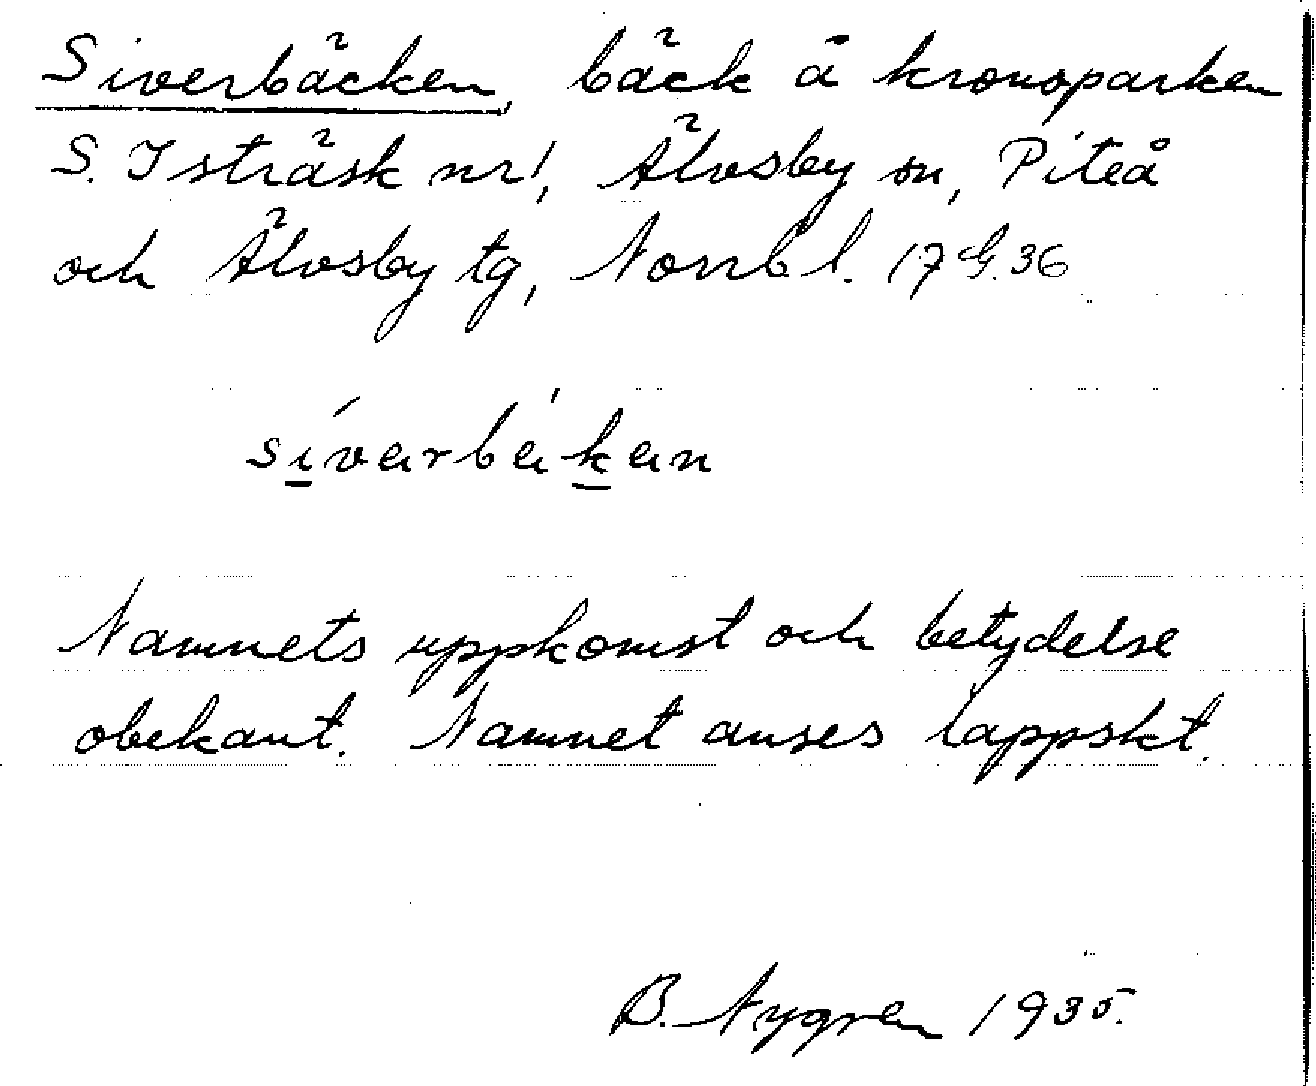 Siverbäcken, bäck å kronoparken
S. Isträsk nr 1, Älvsby sn, Piteå
och Älvsby tg, Norrb l. 17 G. 36
síverbä́ken
Namnets uppkomst och betydelse
obekant. Namnet anses lappskt.
B. Nygren 1935.